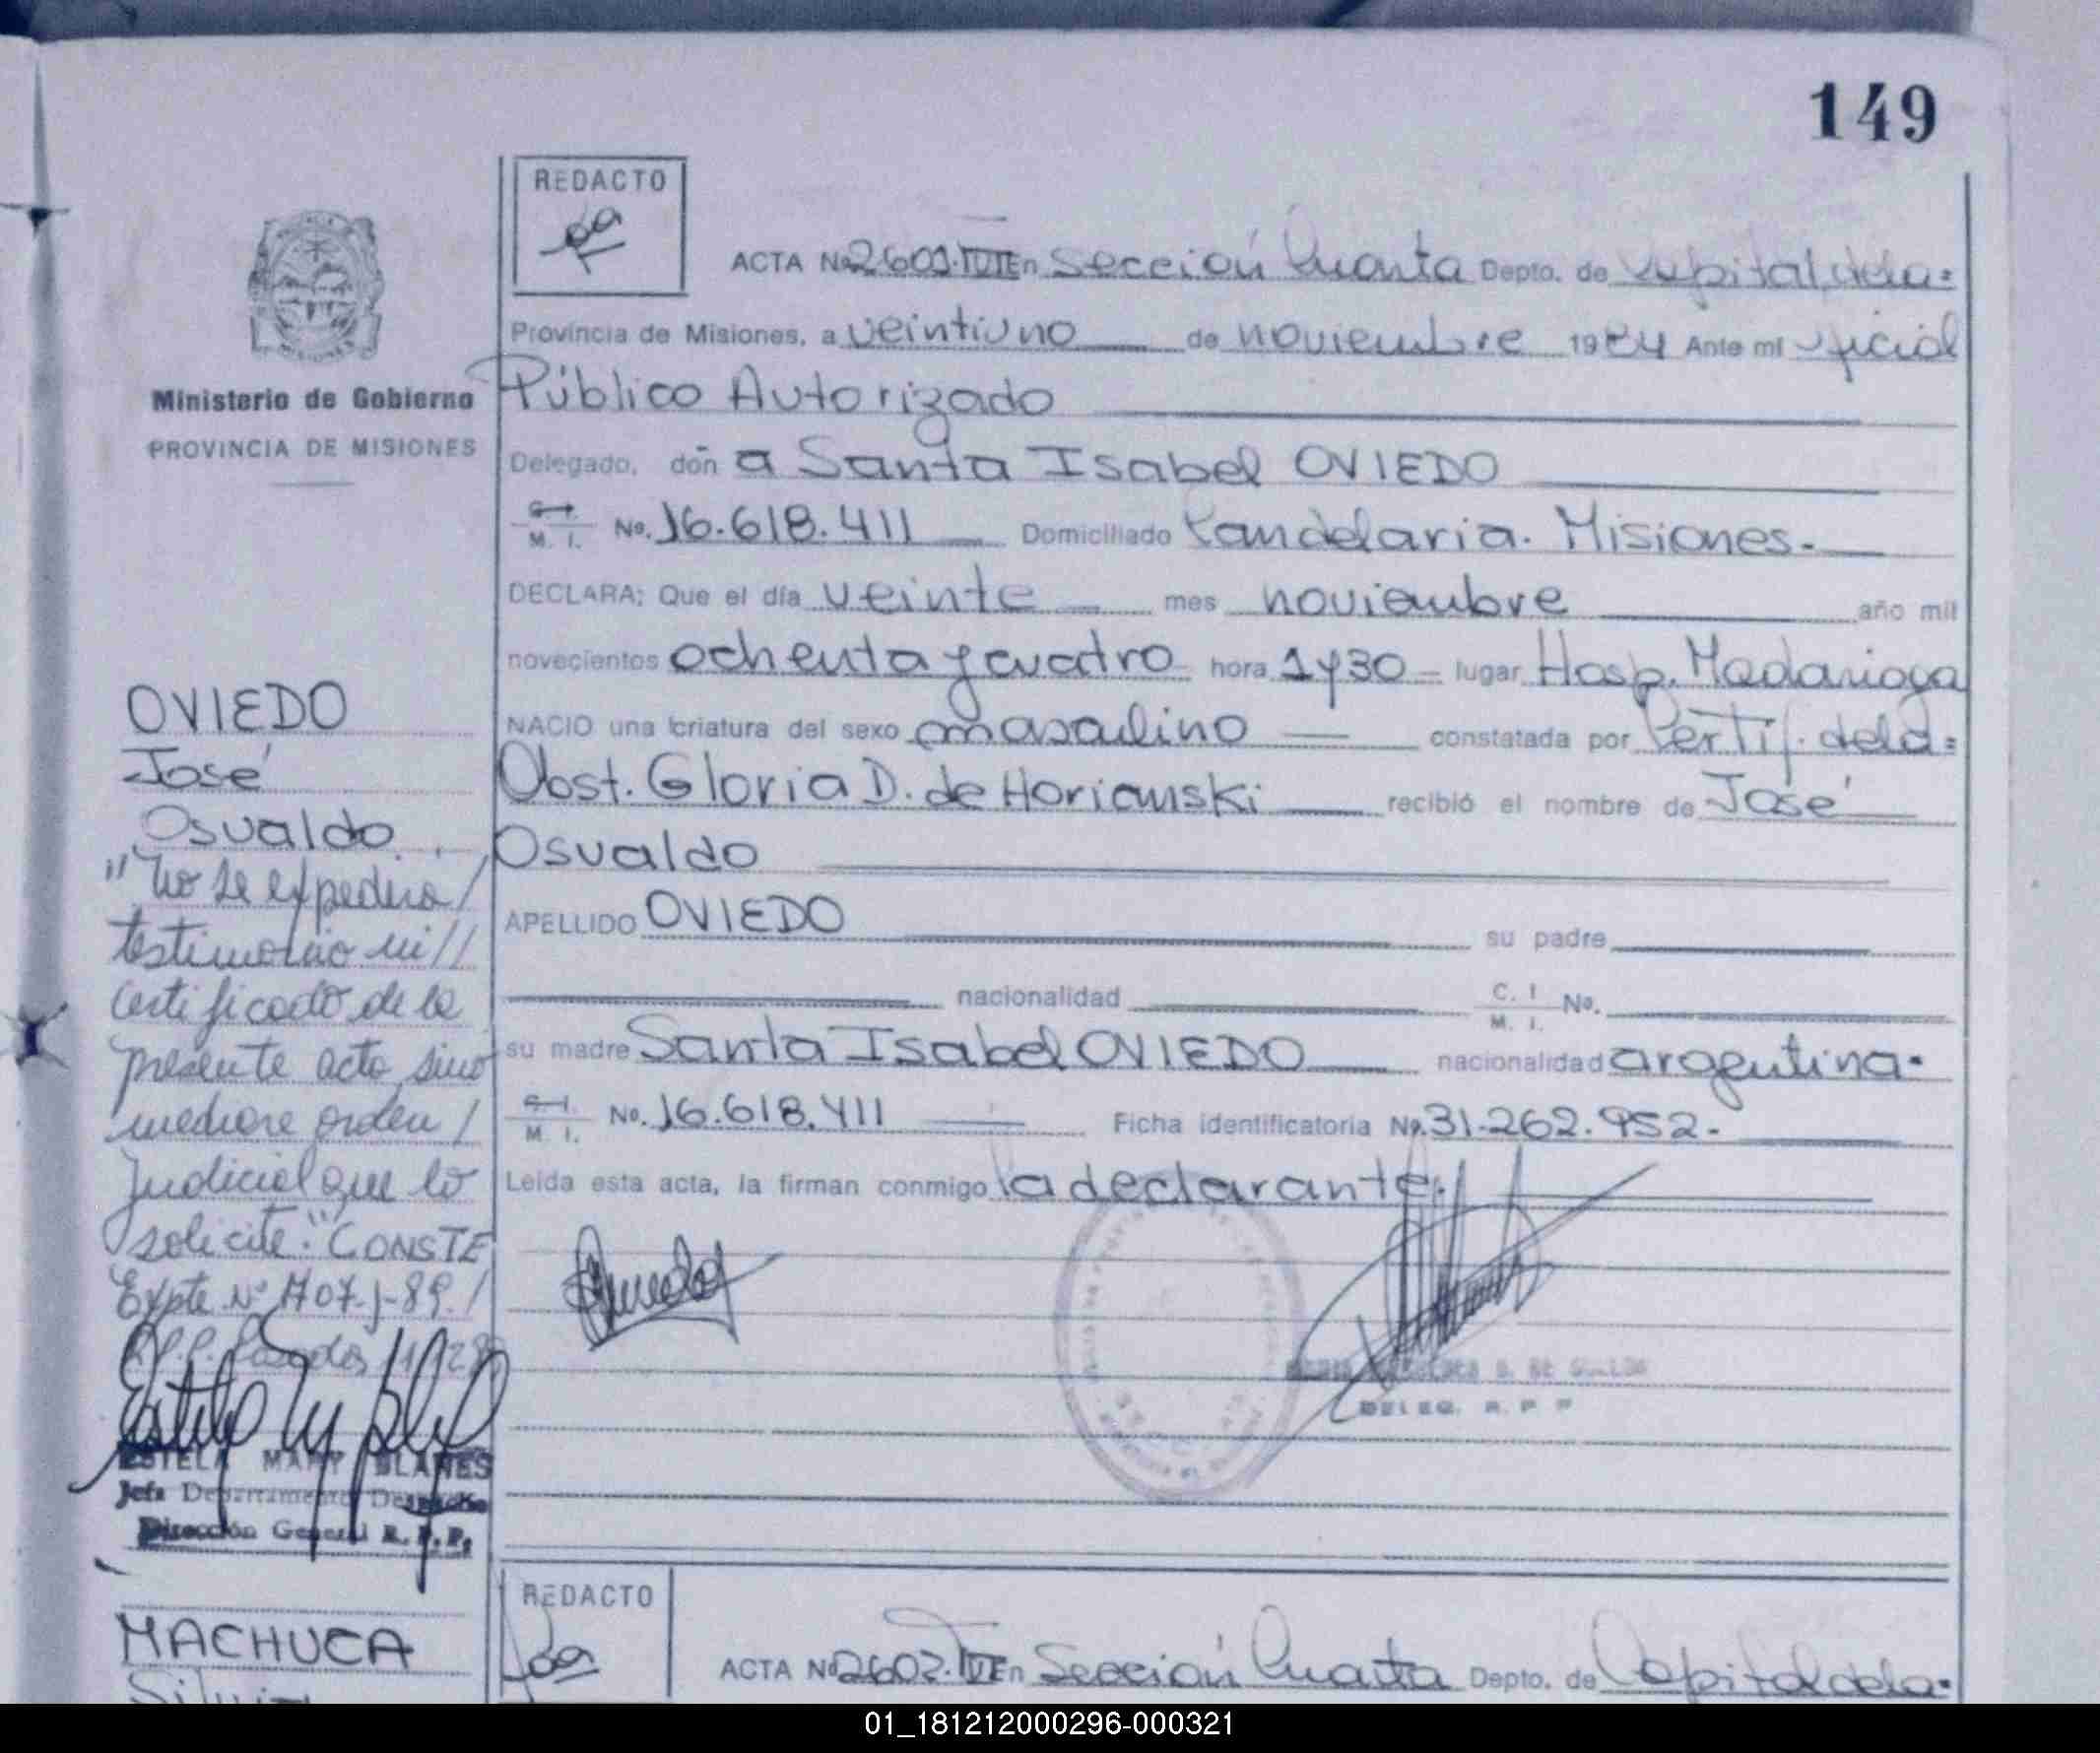 149
REDACTO
ACTA No 2601·IVT En Sección Cuarta Depto. de Capital dela=
Provincia de Misiones, a veintiuno de noviembre 1984 Ante mí Oficial
Público Autorizado
Delegado, don a Santa Isabel OVIEDO
C. I.
M. I. No. 16.618.411 Domiciliado Candelaria. Misiones.
DECLARA: Que el día veinte mes noviembre año mil
novecientos ochenta y cuatro hora 1 y 30 lugar Hosp. Madariaga
NACIO una criatura del sexo masculino constatada por Certif. dela=
Obst. Gloria D. de Horianski recibió el nombre de José
Osvaldo
APELLIDO OVIEDO su padre
nacionalidad C. I.
M. I. No.
su madre Santa Isabel OVIEDO nacionalidad argentina.
C. I.
M. I. No. 16.618.411 Ficha identificatoria No. 31.262.952.
Leída esta acta, la firman conmigo la declarante.
DELEG. R. P. P
Ministerio de Gobierno
PROVINCIA DE MISIONES
OVIEDO
José
Osvaldo
"No se expedira/
testimonio ni//
certificado de la
presente acta, sino
mediare orden/
Judicial que lo
solicite." CONSTE
Expte Nº
ESTELA MARY BLANES
Jefa Departamento Despacho
Dirección General R. P. P.
MACHUCA
REDACTO
ACTA No 2602·IVT En Sección Cuarta Depto. de Capital dela=
01_181212000296-000321